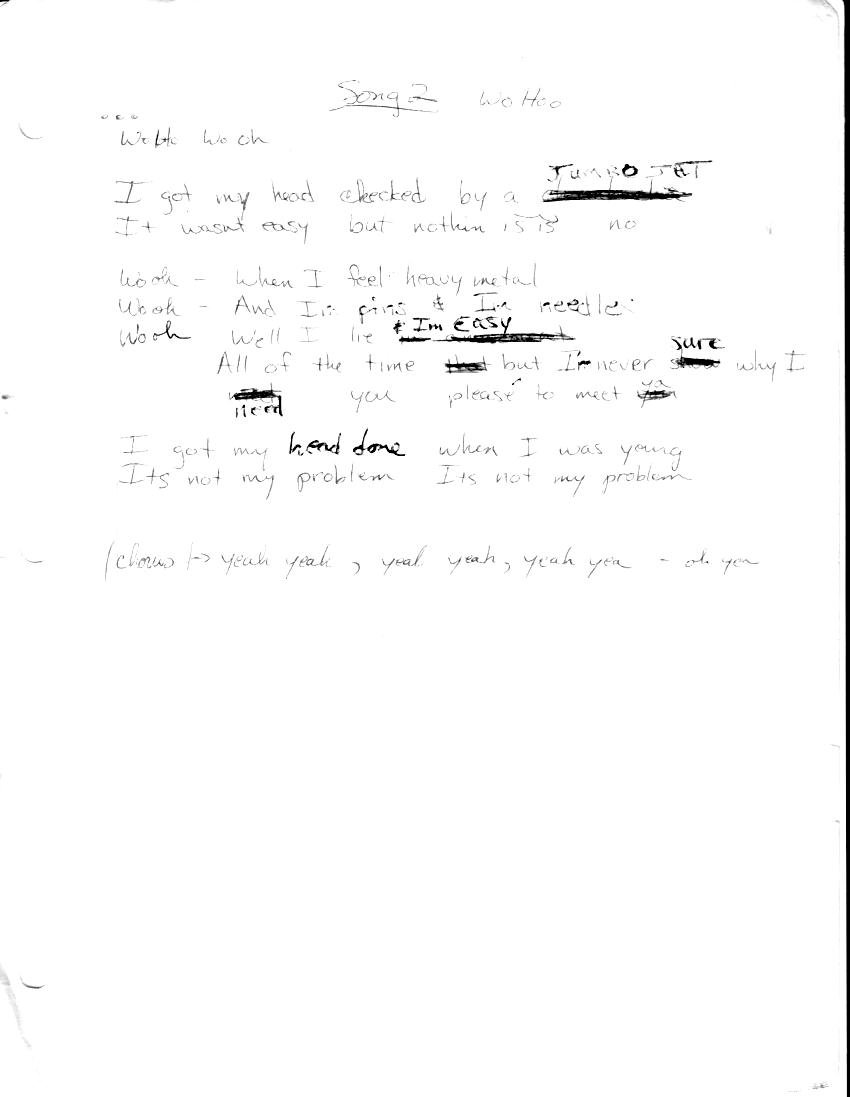 Song 2 Wo Hoo
WoHo Wo oh
I got my head checked by a JUMBO JET
It wasnt easy but nothin is is no
Wooh - When I feel heavy metal
Wooh - And Im pins & Im needles
Wooh Well I lie & Im EASY
All of the time but Im never sure why I
need you please to meet ya
I got my head done when I was young
Its not my problem Its not my problem
(chorus) -> yeah yeah, yeah yeah, yeah yea - oh yea